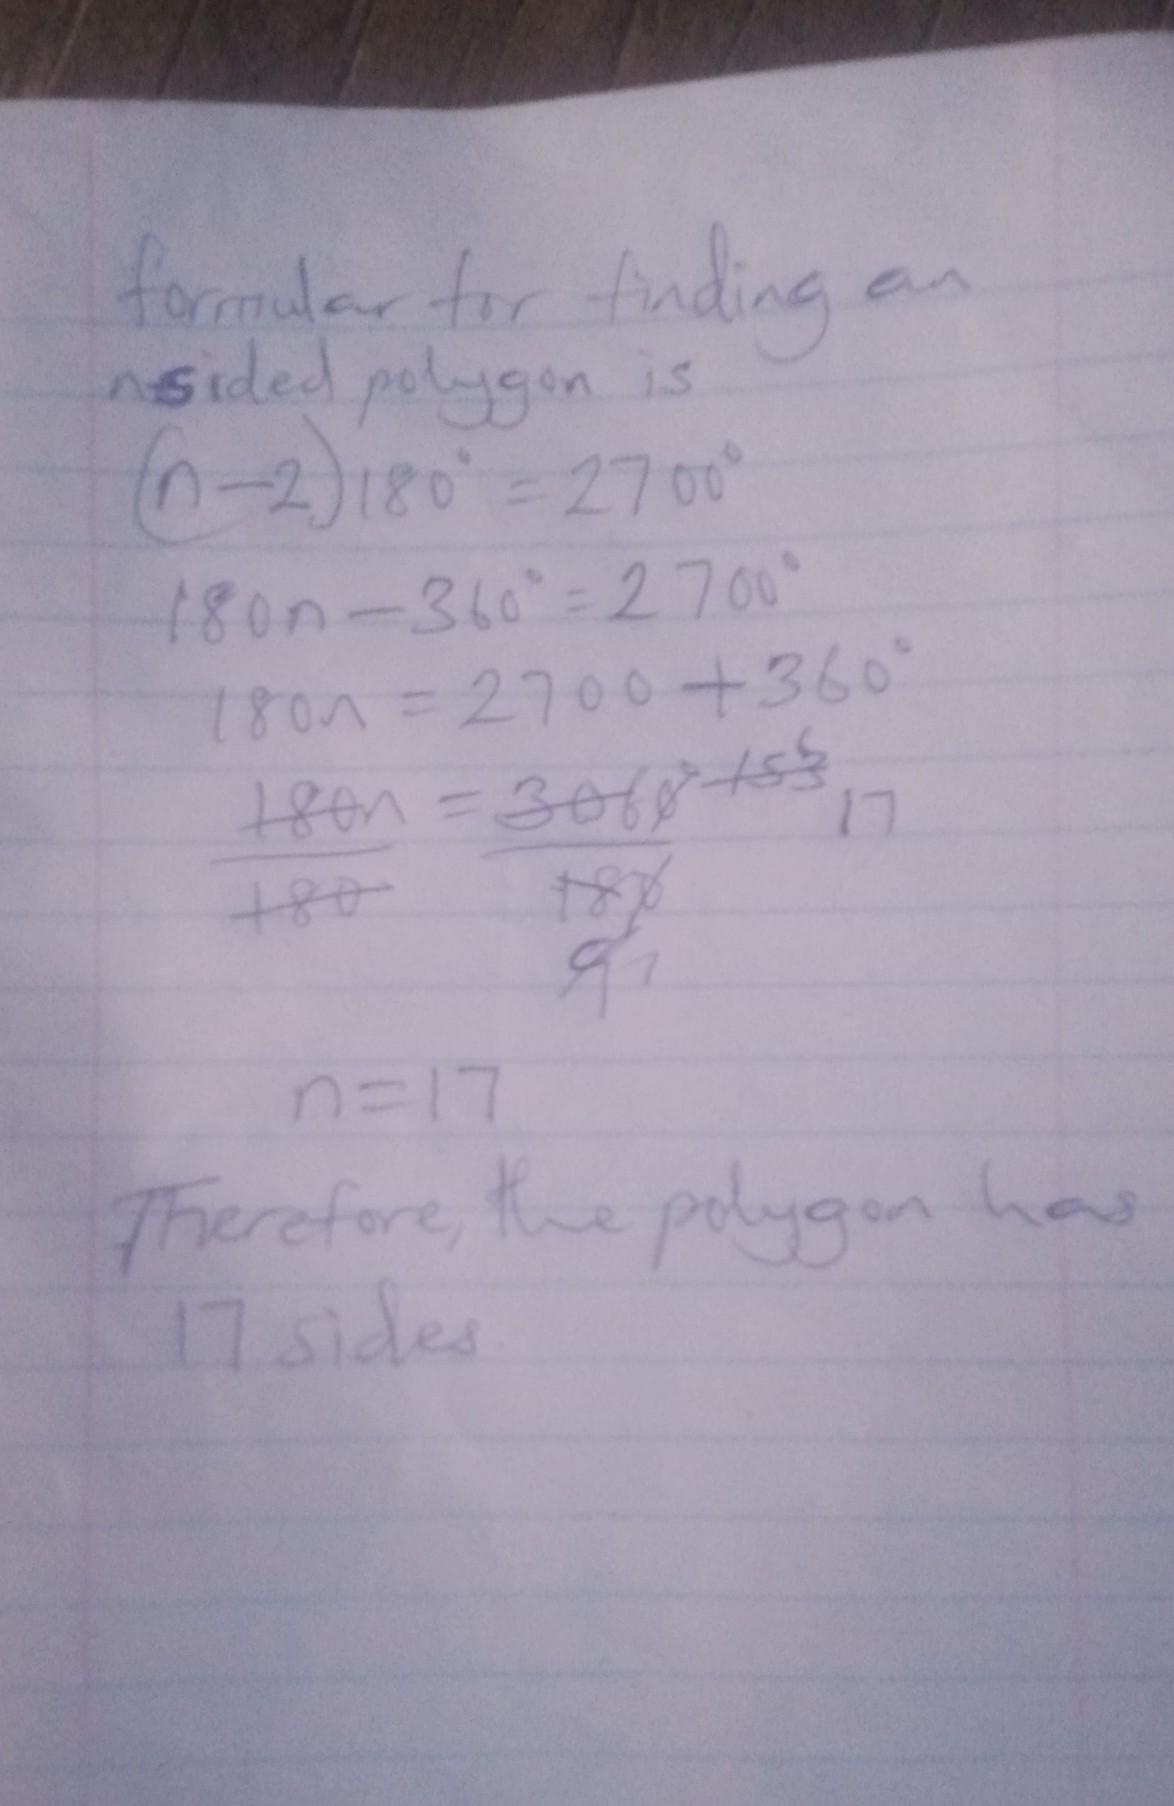 formular for finding an
nsided polygon is
(n-2)180° = 2700°
180n - 360° = 2700°
180n = 2700 + 360°
180n = 3060° 153 17
180 180
9 1
n = 17
Therefore, the polygon has
17 sides.